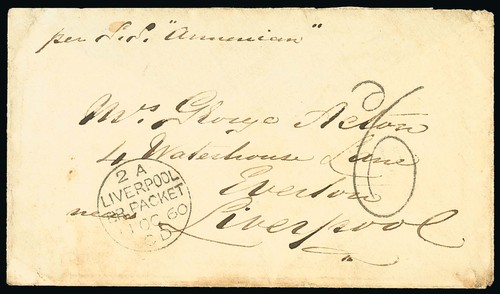 per S.S. "Armenian"
Mrs George Acton
4 Waterhouse Lane
Everton
near Liverpool
6
2 A
LIVERPOOL
BR. PACKET
11 OC 60
C D